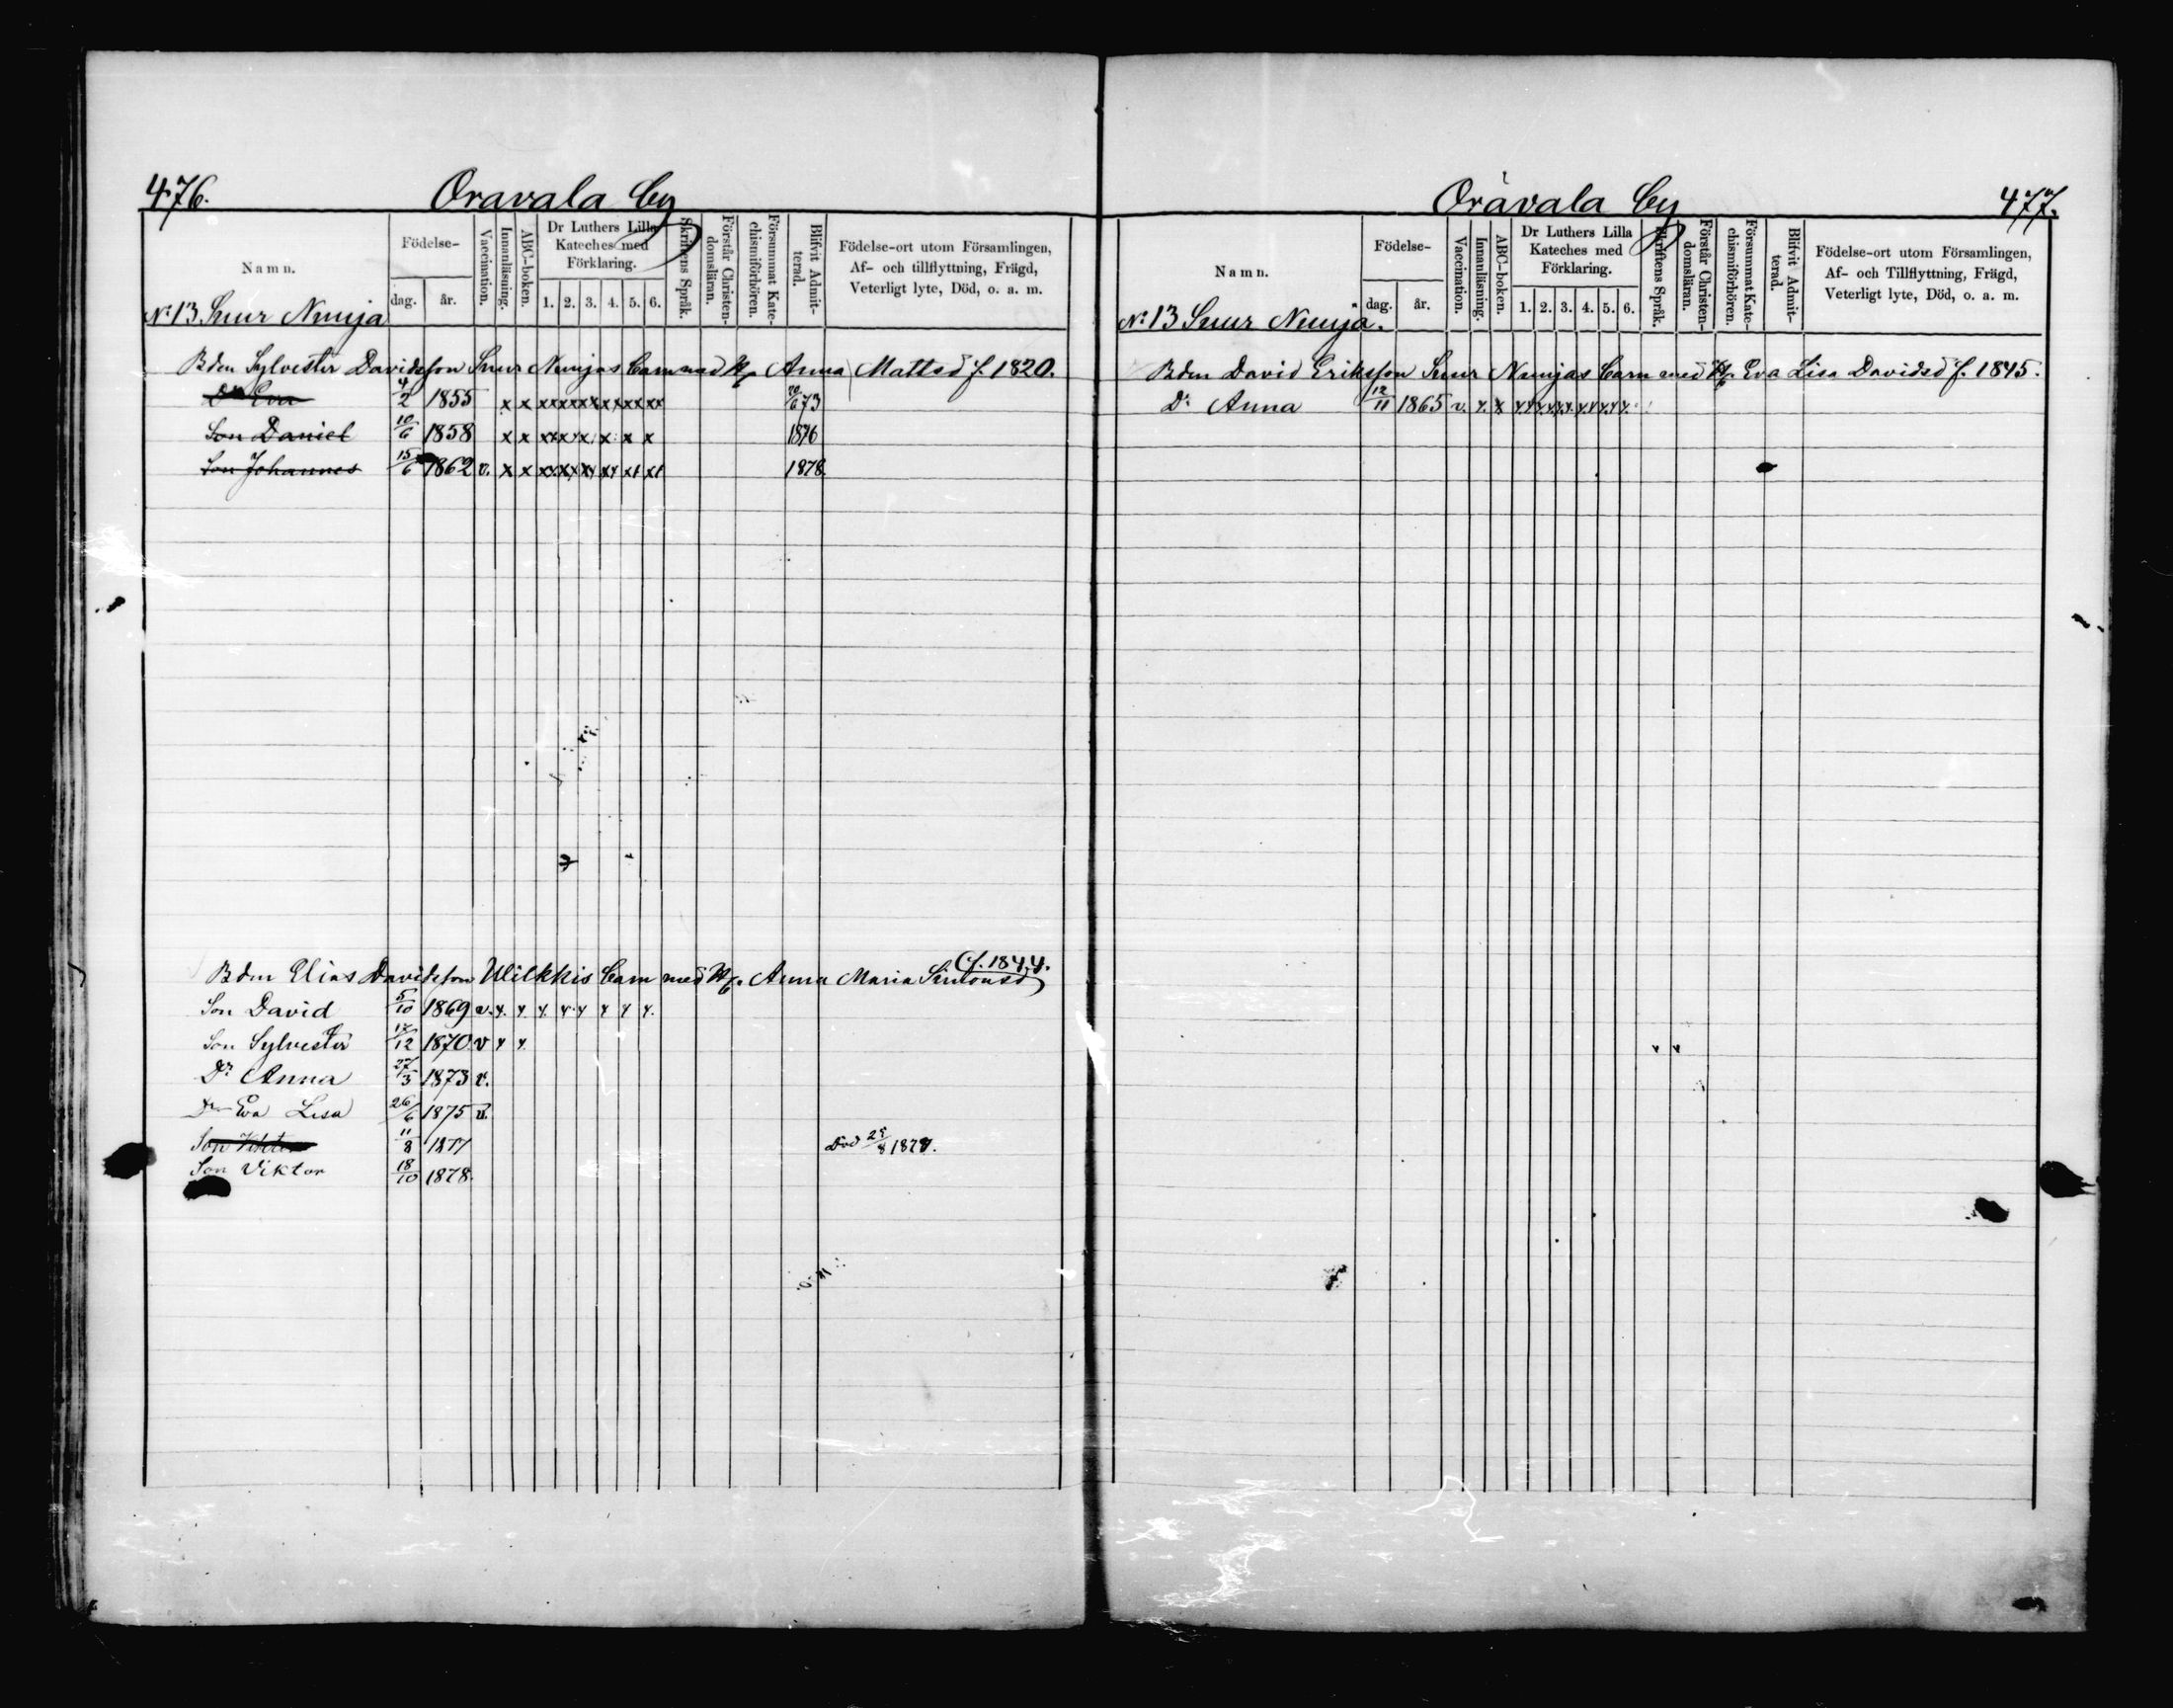 476.
Oravala by
Namn.
Födelse-
dag.
år.
Vaccination.
Innanläsning.
ABC-boken.
Dr Luthers Lilla
Kateches med
Förklaring.
1. 2. 3. 4. 5. 6.
Skriftens Språk.
Förstår Christen-
domsläran.
Försummat Kate-
chismiförhören.
Blifvit Admit-
terad.
Födelse-ort utom Församlingen,
Af- och tillflyttning, Frägd,
Veterligt lyte, Död, o. a. m.
No 13 Suur Nuuja
Bden Sylvester Davidsson Suur Nuujas barn med H. Anna Mattsd f. 1820.
Dr Eva 4/2 1855 x x xx xx xx xx xx xx 20/6 73
Son Daniel 10/6 1858 x x xx xx x x x x 1876
Son Johannes 15/6 1862 v. x x xx xx xx xx xx xx 1878
Bden Elias Davidsson Wilkkis barn med H. Anna Maria Simonsd
f. 1844.
Son David 5/10 1869 v. x x x x x x x x
Son Sylvester 17/12 1870 v x x
Dr Anna 27/3 1873 v.
Dr Eva Lisa 26/6 1875 v.
Son Viktor 11/8 1877 Död 25/8 1877.
Son Viktor 18/10 1878.
Oravala by
477.
Namn.
Födelse-
dag.
år.
Vaccination.
Innanläsning.
ABC-boken.
Dr Luthers Lilla
Kateches med
Förklaring.
1. 2. 3. 4. 5. 6.
Skriftens Språk.
Förstår Christen-
domsläran.
Försummat Kate-
chismiförhören.
Blifvit Admit-
terad.
Födelse-ort utom Församlingen,
Af- och Tillflyttning, Frägd,
Veterligt lyte, Död, o. a. m.
No 13 Suur Nuuja.
Bden David Eriksson Suur Nuujas barn med H. Eva Lisa Davidsd f. 1845.
Dr Anna 12/11 1865 v. x x xx xx xx xx xx x